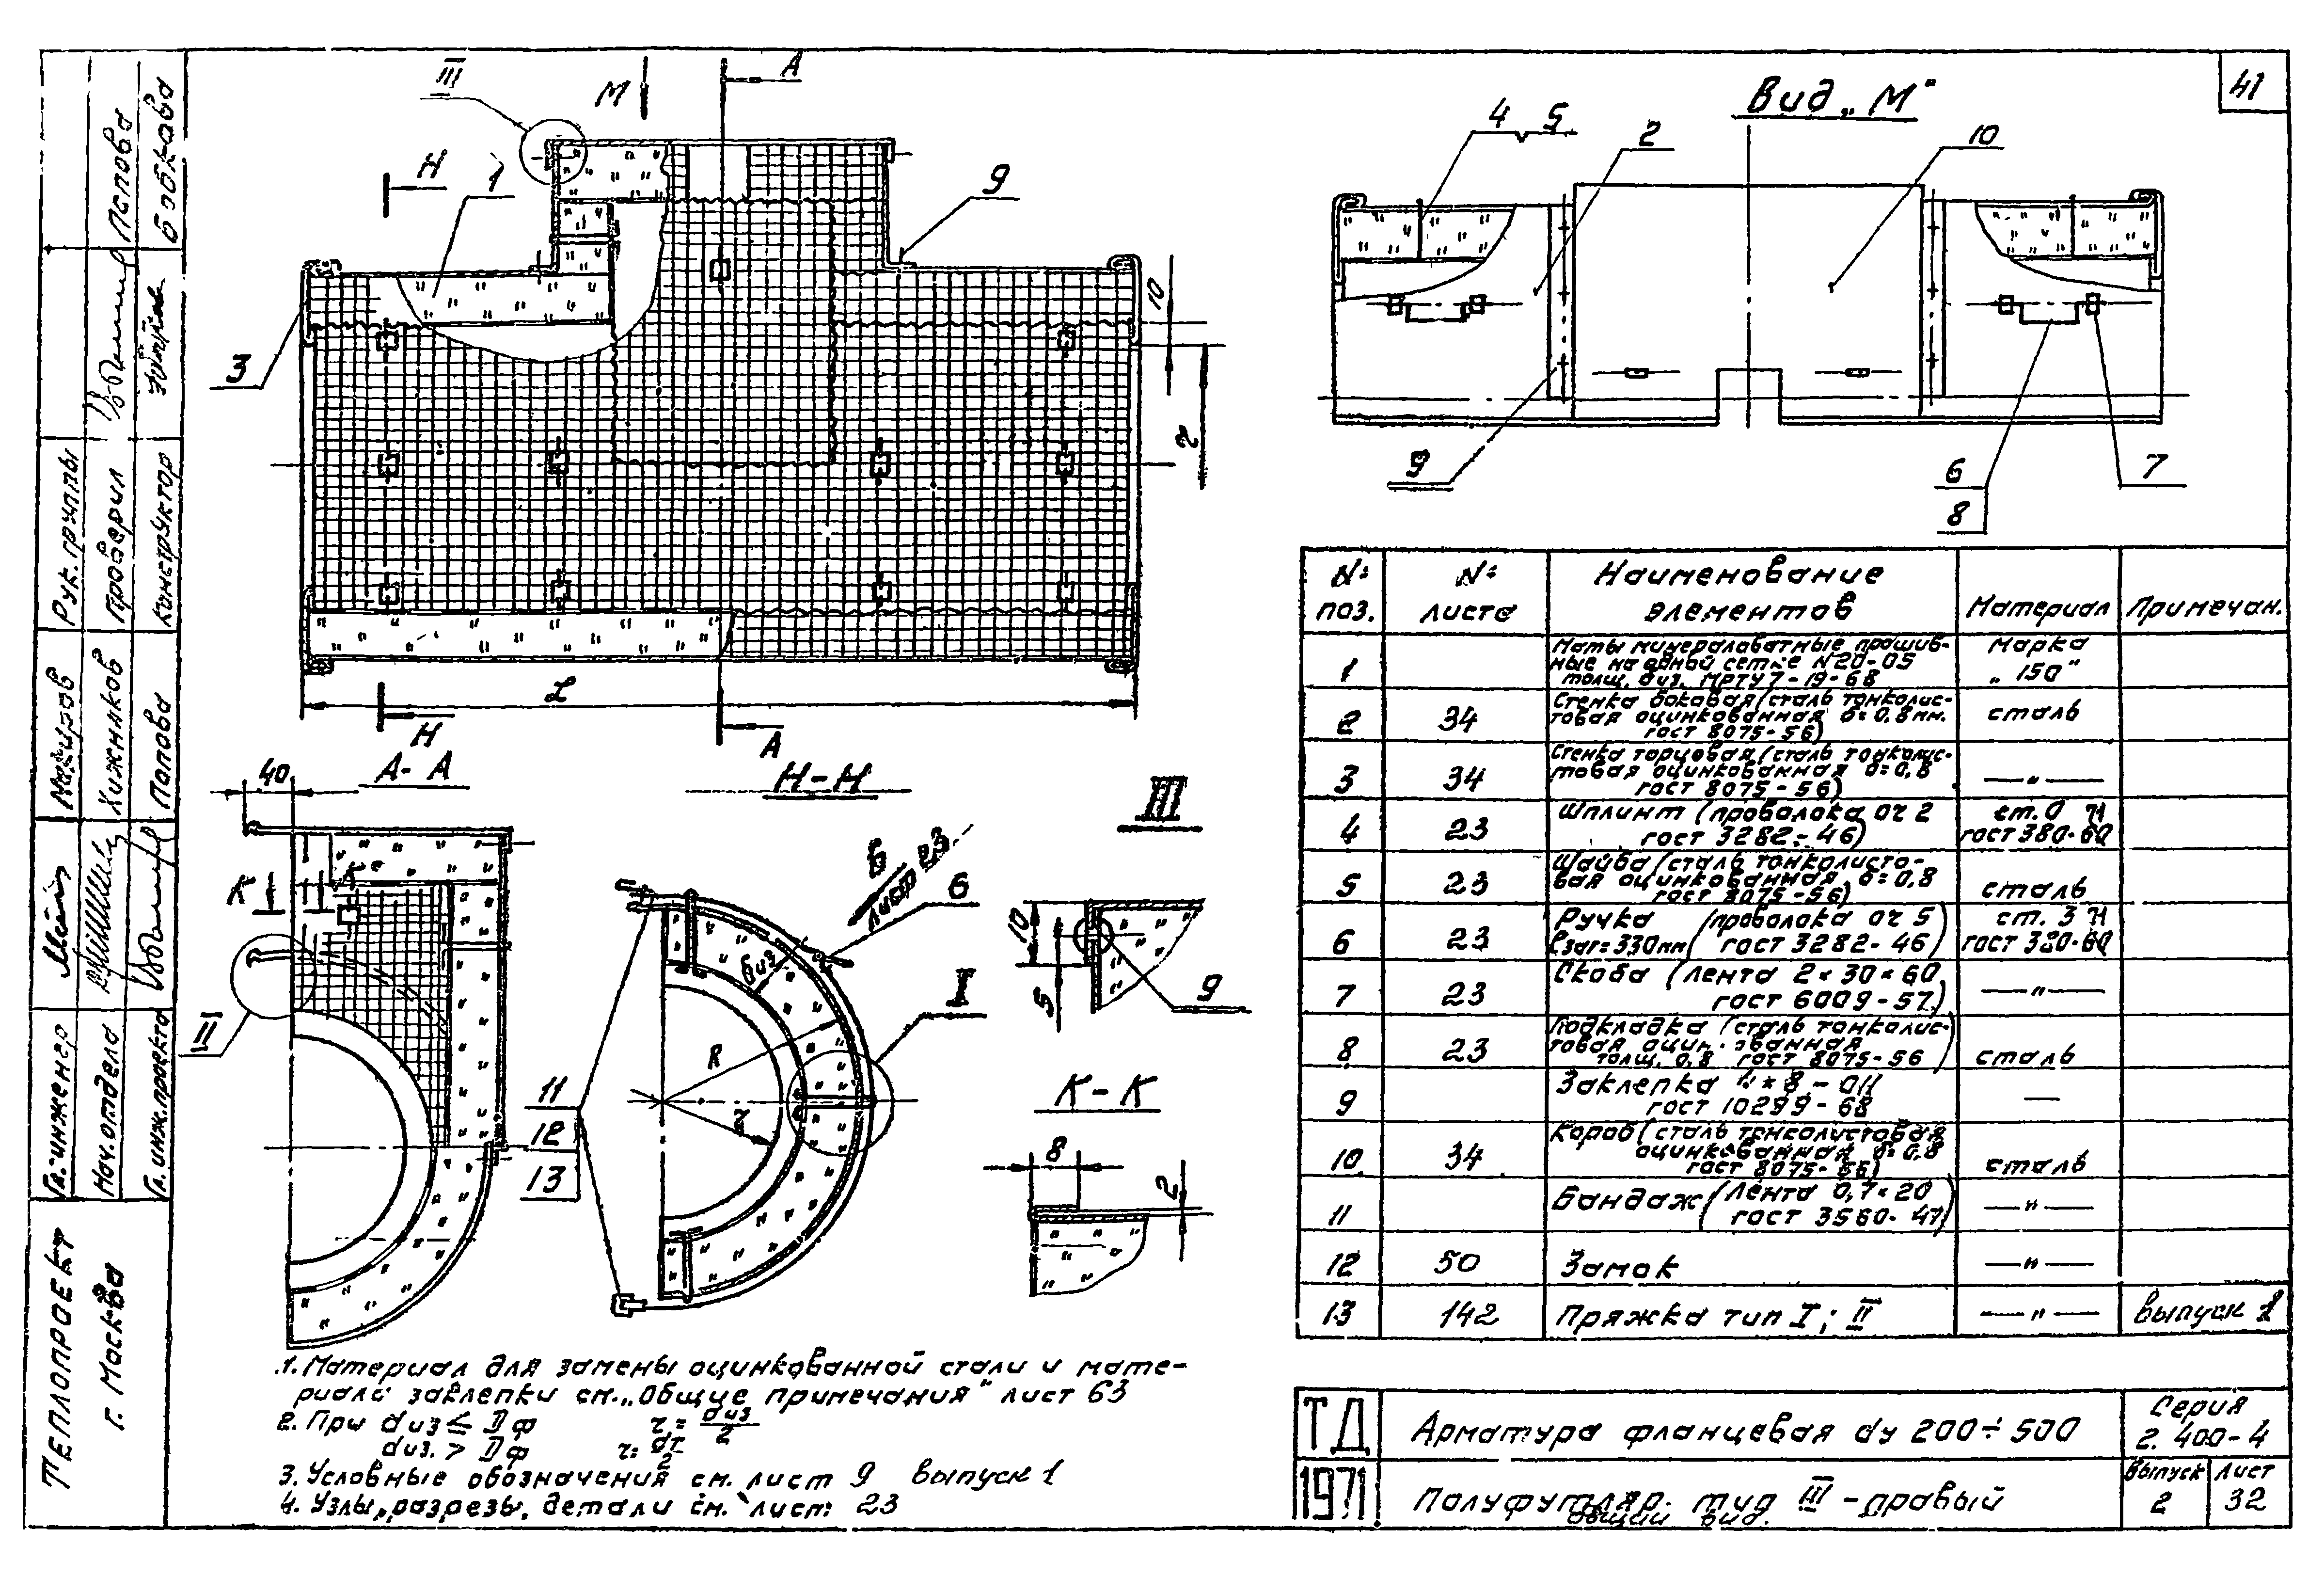 41
III
М
А
Н
1
9
3
10
г
L
Н
А
Вид „М"
4 5
2
10
9
6
8
7
А-А
40
К
II
Н-Н
Б
лист 23
6
биз
I
R
г
11
12
13
III
10
5
9
К-К
8
2
№ поз.
№ листа
Наименование элементов
Материал
Примечан.
1
Маты минераловатные прошив-
ные на одной сетке №20-05
толщ. биз. МРТУ 7-19-68
марка
„150"
2
34
Стенка боковая (сталь тонколис-
товая оцинкованная δ=0,8мм.
гост 8075-56)
сталь
3
34
Стенка торцовая (сталь тонколис-
товая оцинкованная δ=0,8
гост 8075-56)
—„—
4
23
Шплинт (проволока оч 2
гост 3282-46)
ст. 0 Н
гост 380-60
5
23
Шайба (сталь тонколисто-
вая оцинкованная δ=0,8
гост 8075-56)
сталь
6
23
Ручка (проволока оч 5
ℓзаг=330мм гост 3282-46)
ст. 3 Н
гост 380-60
7
23
Скоба (лента 2×30×60
гост 6009-57)
—„—
8
23
Подкладка (сталь тонколис-
товая оцинкованная
толщ. 0,8 гост 8075-56)
сталь
9
Заклепка 4×8-011
гост 10299-68
—
10
34
Короб (сталь тонколистовая
оцинкованная δ=0,8
гост 8075-56)
сталь
11
Бандаж (лента 0,7×20
гост 3560-47)
—"—
12
50
Замок
—"—
13
142
Пряжка тип I; II
—"—
выпуск 1
1. Материал для замены оцинкованной стали и мате-
риала заклепки см. „Общие примечания" лист 63
2. При dиз ≤ Dф г = dиз/2
dиз. > Dф г = dт/2
3. Условные обозначения см. лист 9 выпуск 1
4. Узлы, разрезы, детали см. лист: 23
ТД
1971
Арматура фланцевая dу 200÷500
Полуфутляр. тип III - правый
Общий вид.
Серия
2.400-4
Выпуск
2
Лист
32
Рук. группы
Проверил
Конструктор
Попова
Бобкова
Гл. инженер
Нач. отдела
Гл. инж. проекта
Хижняков
Попова
ТЕПЛОПРОЕКТ
г. Москва